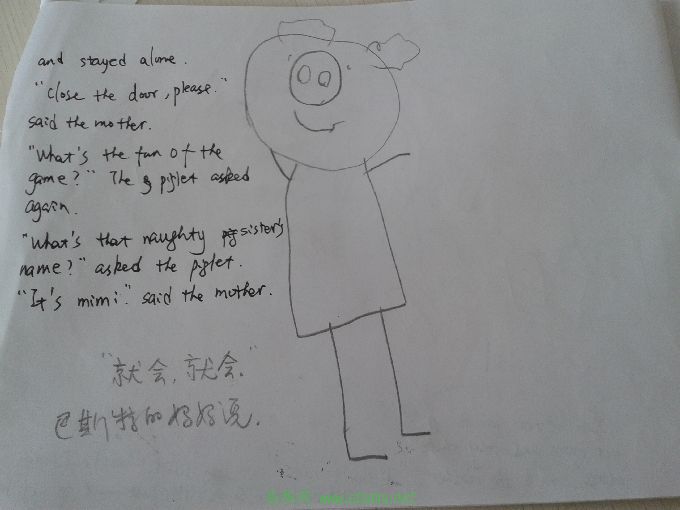 and stayed alone.
"Close the door, please."
said the mother.
"What's the fun of the
game?" The piglet asked
again.
"What's that naughty sister's
name?" asked the piglet.
"It's mimi." said the mother.
"就会,就会."
巴斯特的妈妈说.